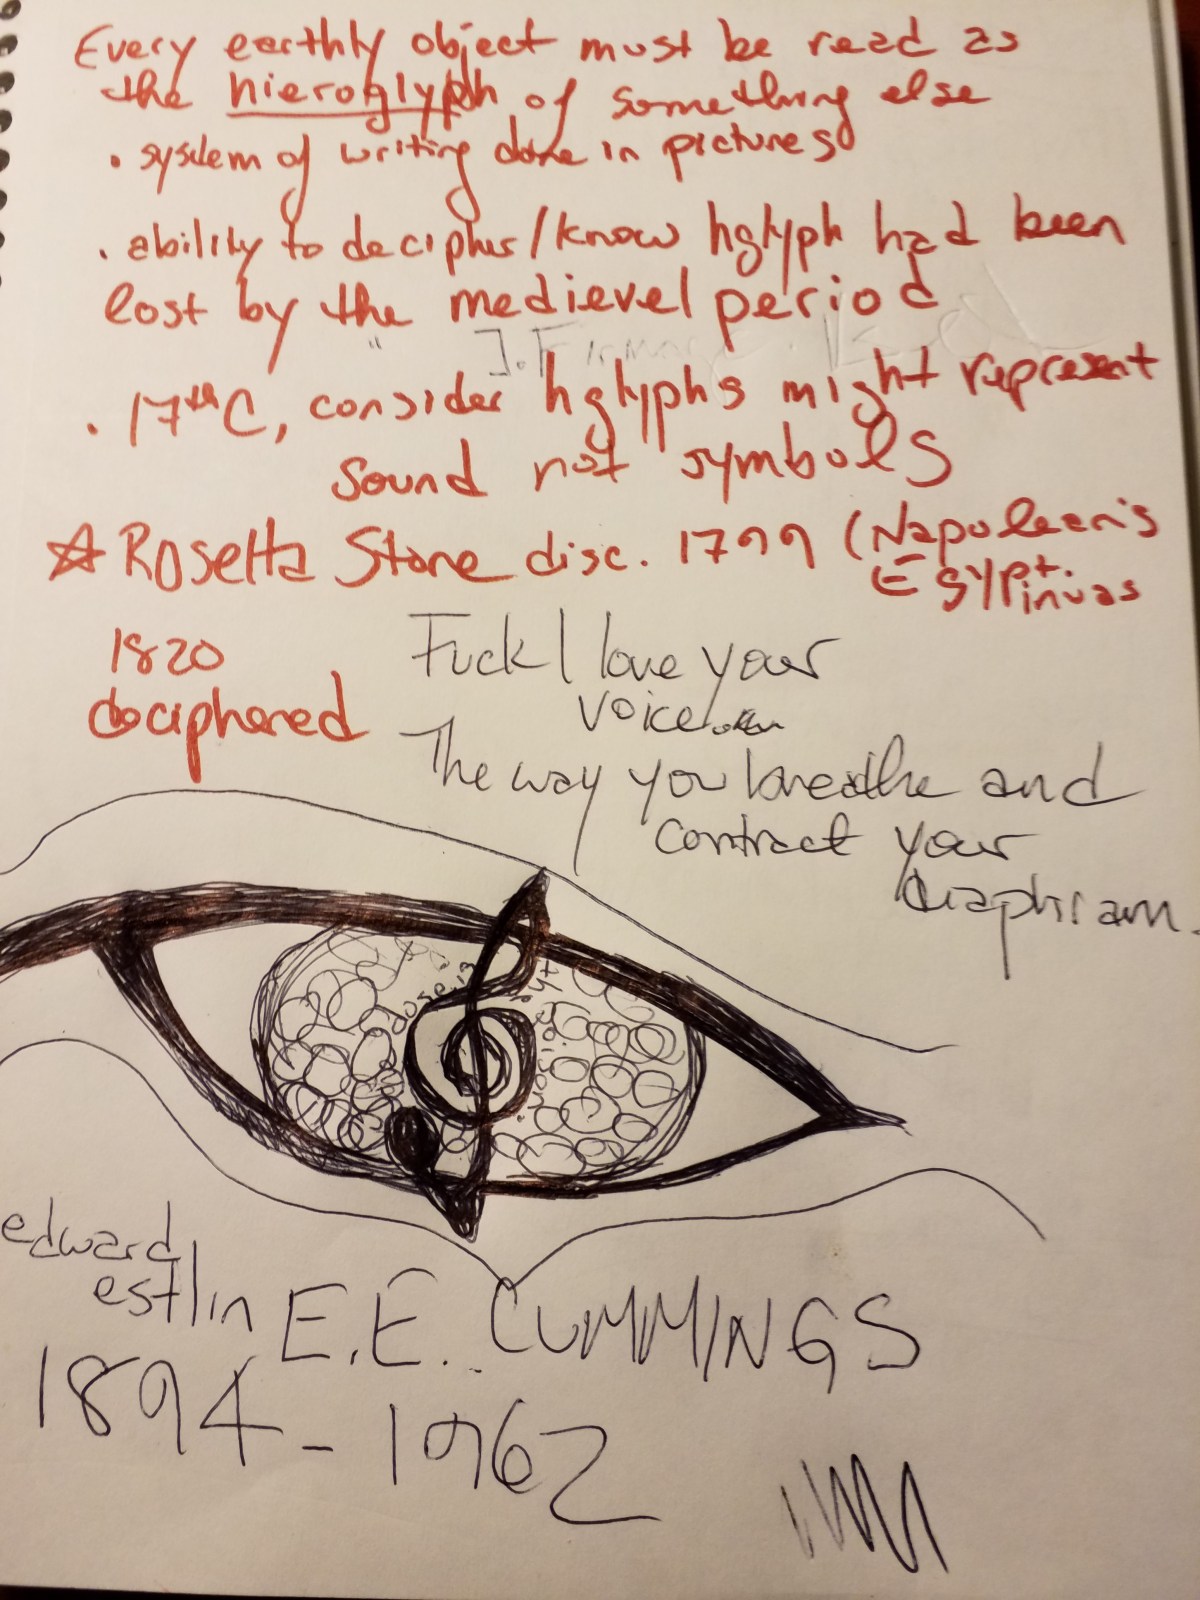 Every earthly object must be read as
the hieroglyph of something else
• system of writing done in pictures
• ability to decipher/know hglyph had been
lost by the medievel period
• 17thC, consider hglyphs might represent
sound not symbols
☆ Rosetta Stone disc. 1799 (Napoleon's
Egypt. invas
1820
deciphered
Fuck I love your
voice
The way you breathe and
contract your
diaphram.
edward
estlin
E.E. CUMMINGS
1894 - 1962